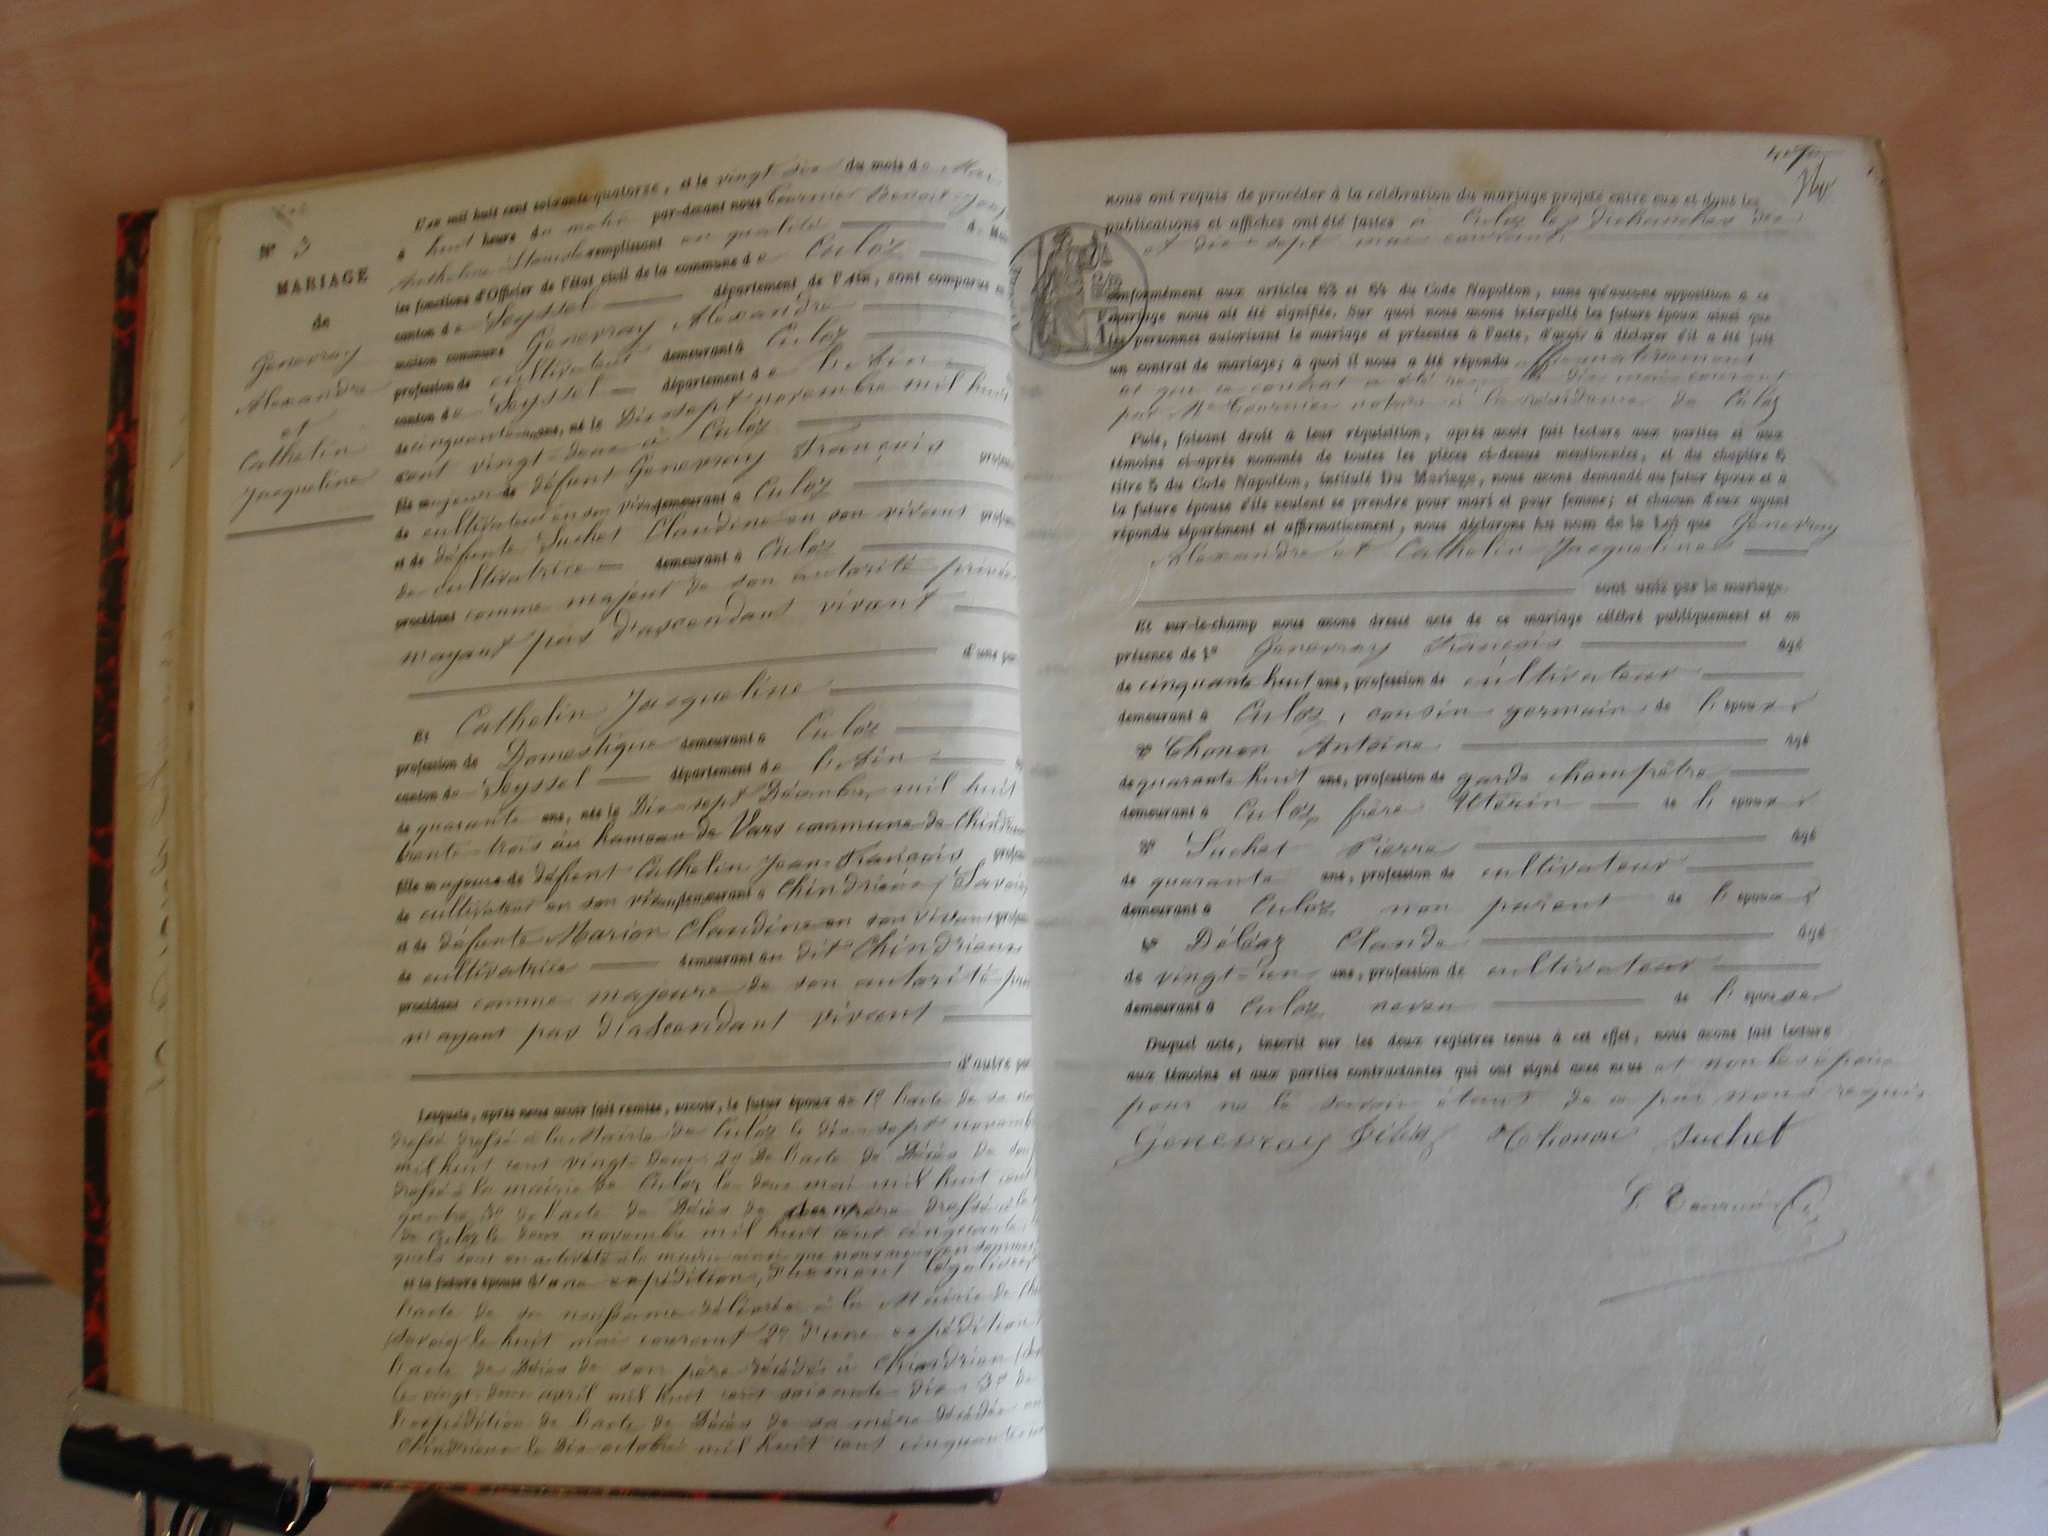 N° 3
MARIAGE
de
Genevray
Alexandre
et
Cathelin
Jacqueline
L'an mil huit cent soixante-quatorze, et le vingt six du mois de Mai
à huit heures du matin par-devant nous Tournier Benoit
Anthelme Stanislas remplissant en qualité de
les fonctions d'Officier de l'État civil de la commune de Culoz
canton de Seyssel département de l'Ain, sont comparus en
maison commune Genevray Alexandre
profession de cultivateur demeurant à Culoz
canton de Seyssel département de l'Ain
de cinquante-un ans, né le Dix-sept novembre mil huit
cent vingt-deux à Culoz
fils majeur de défunt Genevray François
de cultivateur en son vivant demeurant à Culoz
et de défunte Suchet Claudine en son vivant
de cultivatrice demeurant à Culoz
procédant comme majeur de son autorité privée
n'ayant pas d'ascendant vivant
d'une par
Et Cathelin Jacqueline
profession de Domestique demeurant à Culoz
canton de Seyssel département de l'Ain
de quarante ans, née le Dix-sept Décembre mil huit
trente-trois au hameau de Vars commune de Chindrieux
fille majeure de défunt Cathelin Jean-François
de cultivateur en son vivant demeurant à Chindrieux (Savoie
et de défunte Marion Claudine en son vivant
de cultivatrice demeurant au dit Chindrieux
procédant comme majeure de son autorité
n'ayant pas d'ascendant vivant
d'autre par
Lesquels, après nous avoir fait remise, savoir, le futur époux de 1° l'acte de sa
dressé à la Mairie de Culoz le dix-sept novembre
mil huit cent vingt-deux 2° De l'acte de Décès de son
dressé à la mairie de Culoz le deux mai mil huit cent
3° de l'acte de Décès de sa mère dressé à la
de Culoz le deux novembre mil huit cent cinquante
quels sont en activité à la mairie ainsi que nous nous en sommes
et la future épouse d'une expédition dûment légalisée
l'acte de sa naissance délivrée à la Mairie de
(Savoie) le huit mai courant 2° D'une expédition
l'acte de Décès de son père décédé à Chindrieux
le vingt-deux avril mil huit cent soixante-dix 3° de
l'expédition de l'acte de Décès de sa mère décédée
Chindrieux le dix octobre mil huit cent cinquante
nous ont requis de procéder à la célébration du mariage projeté entre eux et dont les
publications et affiches ont été faites à Culoz les Dimanches dix
et dix-sept mai courant
conformément aux articles 63 et 64 du Code Napoléon, sans qu'aucune opposition à ce
mariage nous ait été signifiée. Sur quoi nous avons interpellé les futurs époux ainsi que
les personnes autorisant le mariage et présentes à l'acte, d'avoir à déclarer s'il a été fait
un contrat de mariage; à quoi il nous a été répondu affirmativement
et que ce contrat a été reçu le dix mai courant
par Me Tournier notaire à la résidence de Culoz
Puis, faisant droit à leur réquisition, après avoir fait lecture aux parties et aux
témoins ci-après nommés de toutes les pièces ci-dessus mentionnées, et du chapitre 6,
titre 5 du Code Napoléon, intitulé Du Mariage, nous avons demandé au futur époux et à
la future épouse s'ils veulent se prendre pour mari et pour femme; et chacun d'eux ayant
répondu séparément et affirmativement, nous déclarons au nom de la Loi que Genevray
Alexandre et Cathelin Jacqueline
sont unis par le mariage.
Et sur-le-champ nous avons dressé acte de ce mariage célébré publiquement et en
présence de 1° Genevray François âgé
de cinquante huit ans, profession de cultivateur
demeurant à Culoz, cousin germain de l'époux
2° Thonon Antoine âgé
de quarante huit ans, profession de garde champêtre
demeurant à Culoz frère Utérin de l'époux
3° Suchet Pierre âgé
de quarante ans, profession de cultivateur
demeurant à Culoz non parent de l'époux
4° Débiaz Claude âgé
de vingt-un ans, profession de cultivateur
demeurant à Culoz neveu de l'épouse
Duquel acte, inscrit sur les deux registres tenus à cet effet, nous avons fait lecture
aux témoins et aux parties contractantes qui ont signé avec nous et non les époux
pour ne le savoir étant de ce par nous requis
Genevray Thonon Suchet